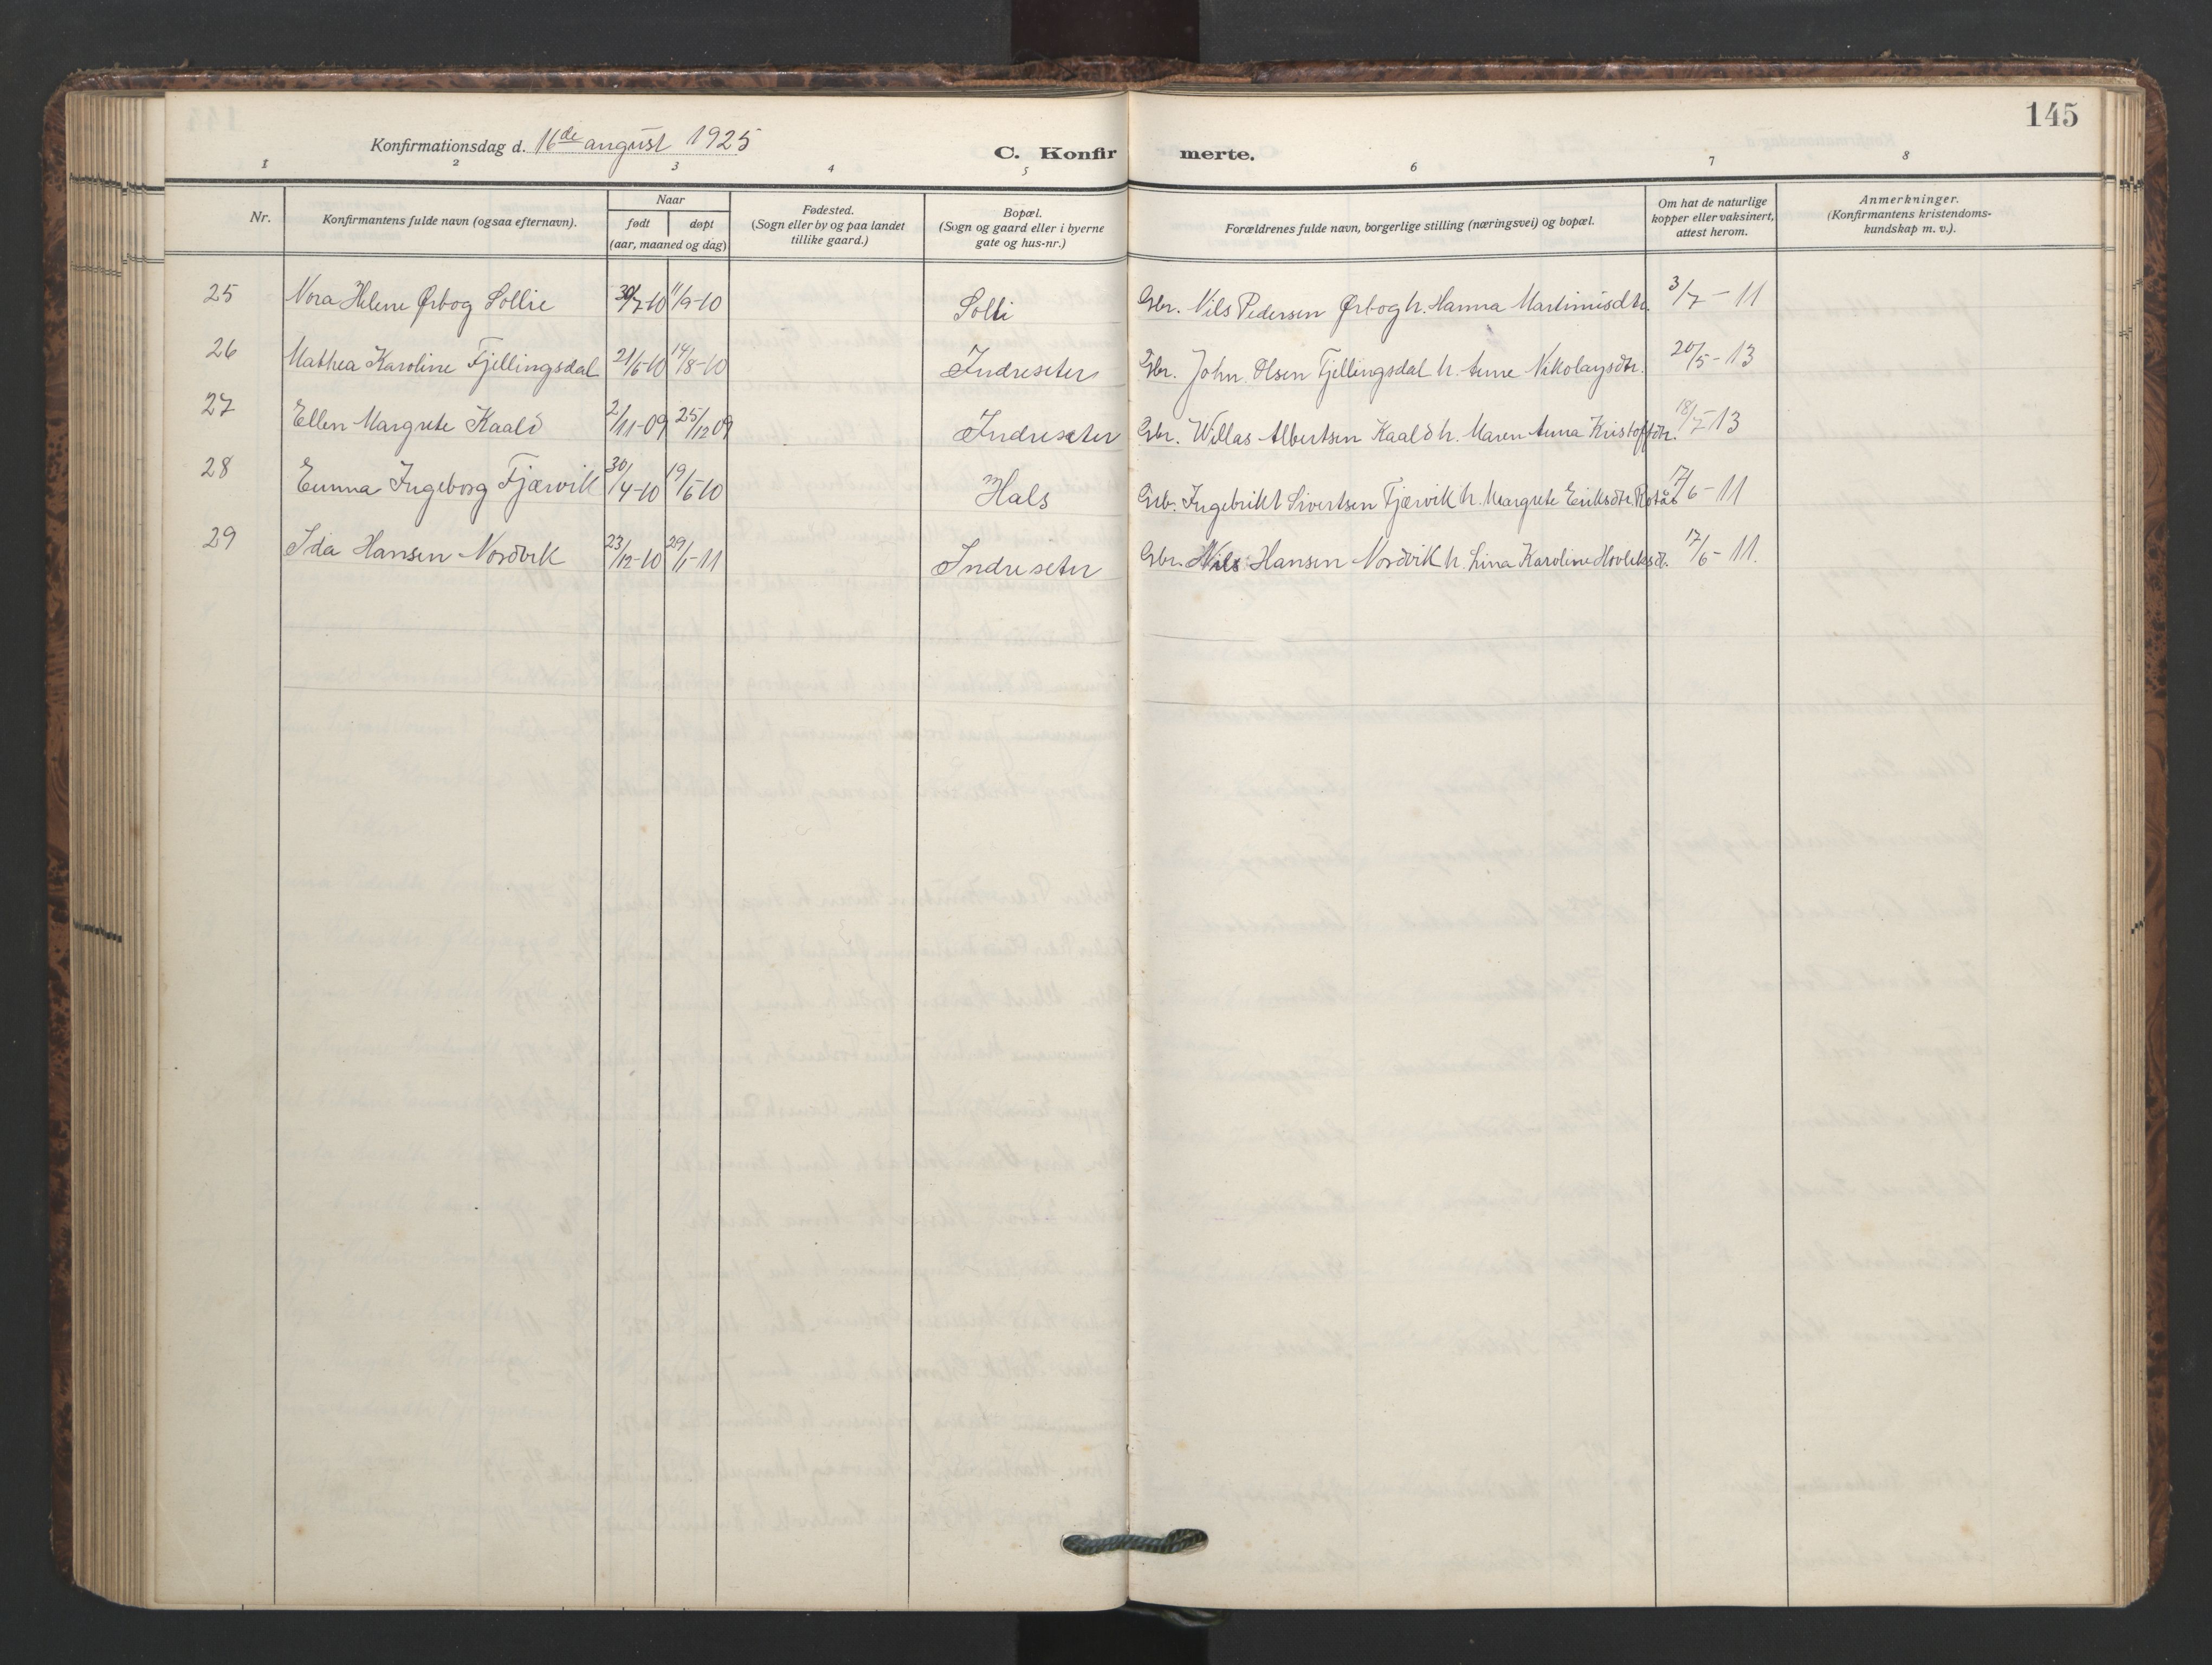 145
Konfirmationsdag d. 16de august 1925
C. Konfirmerte.
1 2 3 4 5 6 7 8
Nr.
Konfirmantens fulde navn (ogsaa efternavn).
Naar
født døpt
(aar, maaned og dag)
Fødested.
(Sogn eller by og paa landet
tillike gaard.)
Bopæl.
(Sogn og gaard eller i byerne
gate og hus-nr.)
Forældrenes fulde navn, borgerlige stilling (næringsvei) og bopæl.
Om hat de naturlige
kopper eller vaksinert,
attest herom.
Anmerkninger.
(Konfirmantens kristendoms-
kundskap m. v.).
25 Nora Helene Ørbog Sollie 30/7-10 11/9-10 Solli Gbr. Nils Pedersen Ørbog h. Hanna Martinusdtr. 3/7-11
26 Mathea Karoline Fjellingsdal 21/6-10 14/8-10 Indreseter Gbr. John Olsen Fjellingsdal h. Anne Nikolaysdtr. 20/5-13
27 Ellen Margrete Kaald 2/11-09 25/12 09 Indreseter Gbr. Willas Albertsen Kaald h. Maren Anna Kristoffdtr. 18/7-13
28 Emma Ingeborg Fjærvik 30/4-10 19/6-10 Hals Gbr. Ingebrikt Sivertsen Fjærvik h. Margrete Eriksdtr. 17/6-11
29 Ida Hansen Nordvik 23/12-10 29/1-11 Indreseter Gbr. Nils Hansen Nordvik h. Lina Karoline 17/6-11.